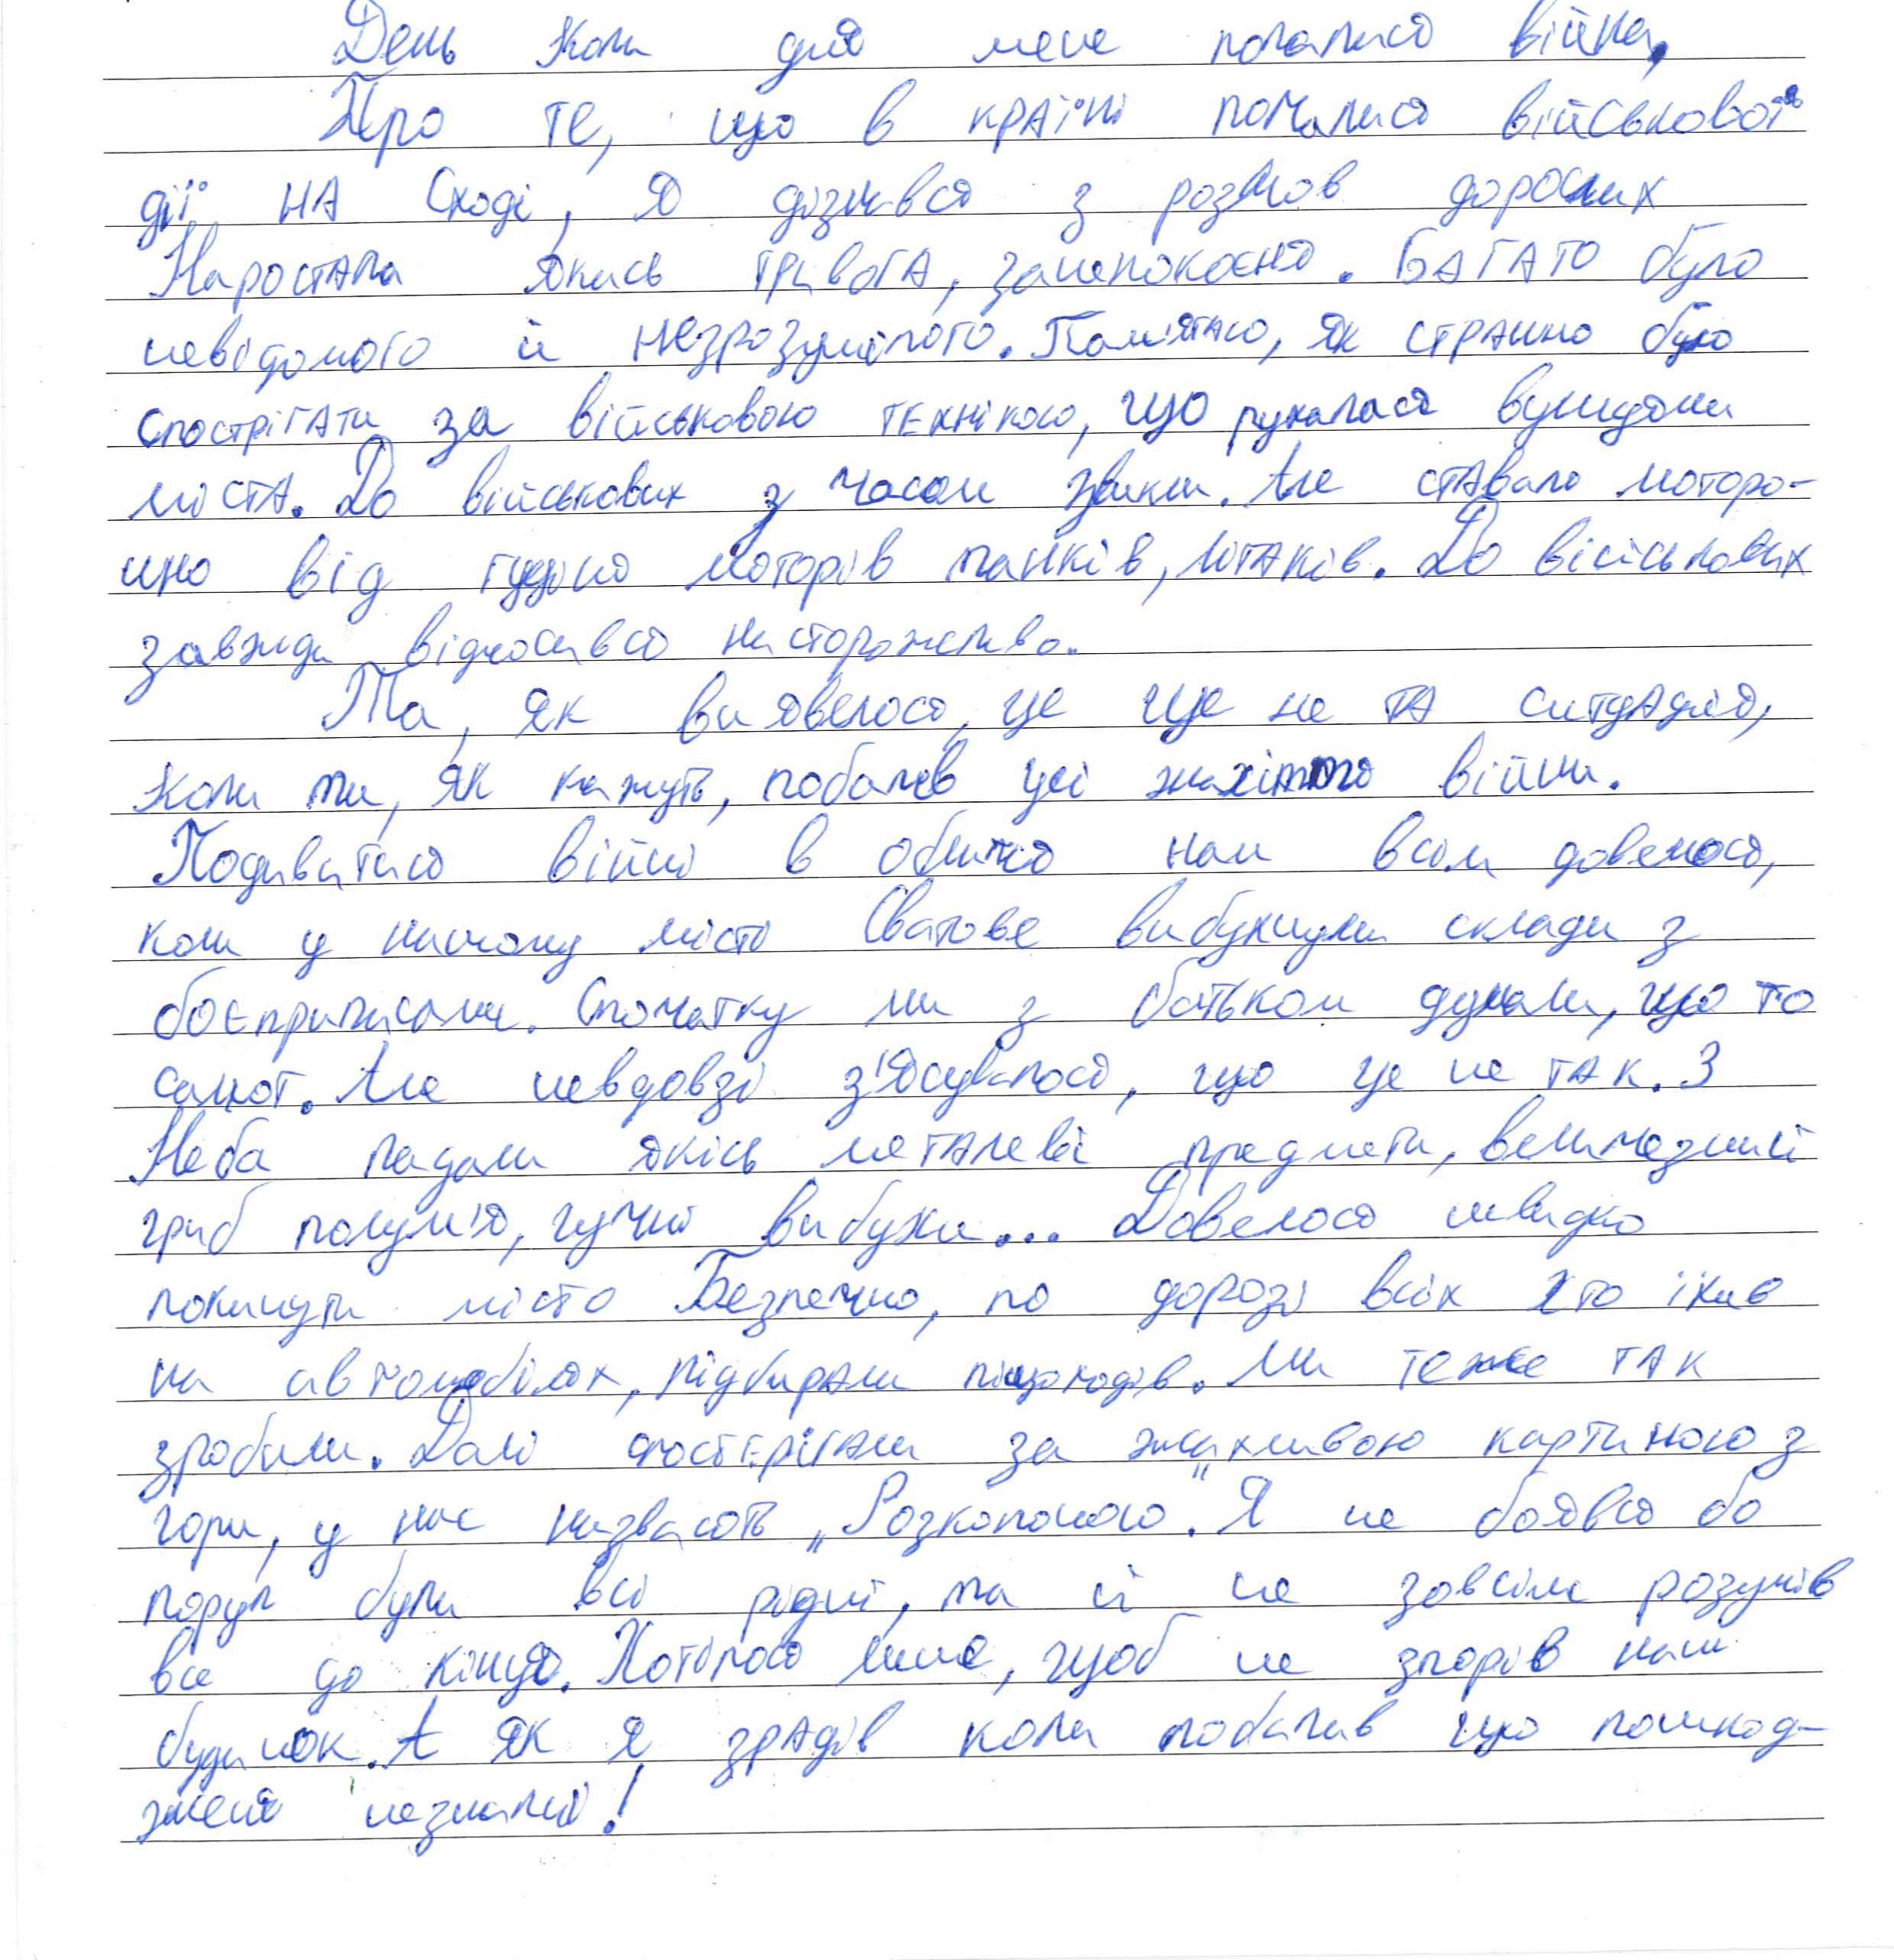 День коли для мене почалися війна.
Про те, що в країні почалися військової
дії на Сході, я дізнався з розмов дорослих
Наростала якась тривога, занепокоєння. Багато було
невідомого й незрозумілого. Пам'ятаю, як страшно було
спострігати за військовою технікою, що рухалася вулицями
міста. До військових з часом звикли. Але ставало моторо-
шно від гудіння моторів танків, літаків. До військових
завжди відносився насторожливо.
Та, як виявелося, це ще не та ситуація,
коли ти, як кажуть, побачив усі жахіття війни.
Подиватися війні в обличчя нам всім довелося,
коли у нашому місті Сватове вибухнули склади з
боєприпасами. Спочатку ми з батьком думали, що то
салют. Але невдовзі з'ясувалося, що це не так. З
Неба падали якісь металеві предмети, величезний
гриб полум'я, гучні вибухи... Довелося швидко
покинути місто Безпечно, по дорозі всіх хто їхав
на автомобілях, підбирали пішоходів. Ми теж так
зробили. Далі спостерігали за жахливою картиною з
гори, у нас називають „Розкопаною". Я не боявся бо
поруч були всі рідні, та й не зовсім розумів
все до кінця. Хотілося лише, щоб не згорів наш
будинок. А як я зрадів коли побачив що пошкод-
ження незначні!